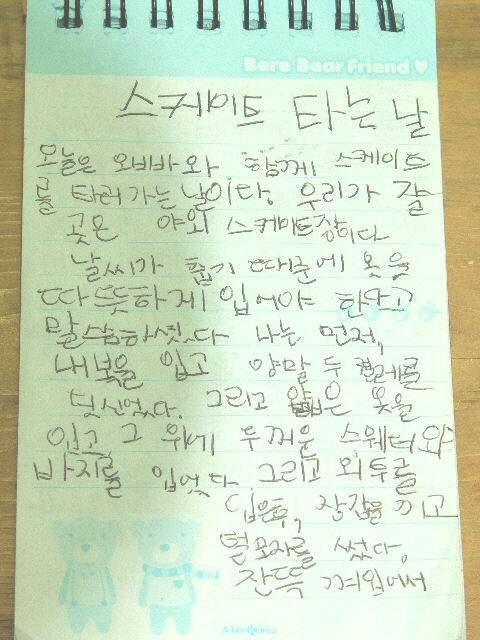 Bere Bear Friend
스케이트 타는 날
오늘은 오비바와 함께 스케이트
를 타러 가는 날이다. 우리가 갈
곳은 야외 스케이트장이다
날씨가 춥기 때문에 옷을
따뜻하게 입어야 한다고
말씀하셨다 나는 먼저,
내복을 입고 양말 두 켤레를
덧신었다. 그리고 얇은 옷을
입고 그 위에 두꺼운 스웨터와
바지를 입었다 그리고 외투를
입은후, 장갑을 끼고
털모자를 썼다.
잔뜩 껴입어서